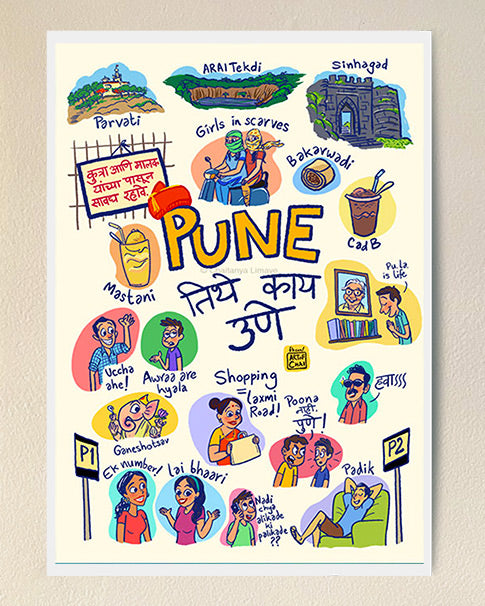 ARAI Tekdi
Sinhagad
Parvati
Girls in scarves
कुत्रा आणि मालक
यांच्या पासून
सावध रहावे.
Bakarwadi
PUNE
Cad B
© Chaitanya Limaye
Mastani
तिथे काय
उणे
Pu.la.
is life
Uccha
ahe!
Awraa are
hyala
Shopping
=
Laxmi
Road!
Poona
नाही.
पुणे!
हवाssss
Ganeshotsav
P1
P2
Ek number!
Lai bhaari
Nadi
chya
alikade
ki
palikade
??
Padik